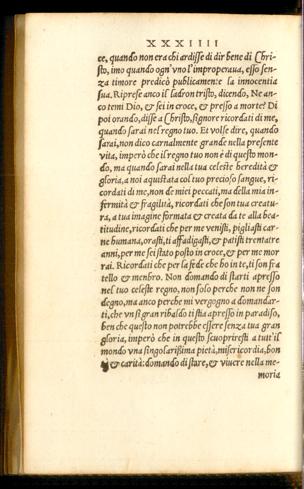 XXXIIII
ce, quando non era chi ardisse di dir bene di Chri-
sto, imo quando ogn'vno l'improperaua, esso sen-
za timore predicò publicamente la innocentia
sua. Riprese anco il ladron tristo, dicendo, Ne an-
co temi Dio, & sei in croce, & presso a morte? Di
poi orando, disse a Christo, signore ricordati di me,
quando sarai nel regno tuo. Et volse dire, quando
sarai, non dico carnalmente grande nella presente
vita, imperò che il regno tuo non è di questo mon-
do, ma quando sarai nella tua celeste heredità &
gloria, a noi aquistata col tuo precioso sangue, ri-
cordati di me, non de miei peccati, ma della mia in-
fermità & fragilità, ricordati che son tua creatu-
ra, a tua imagine formata & creata da te alla bea-
titudine, ricordati che per me venisti, pigliasti car-
ne humana, orasti, ti affadigasti, & patisti trentatre
anni, per me sei stato posto in croce, & per me mor
rai. Ricordati che per la fede che ho in te, ti son fra
tello & menbro. Non domando di starti apresso
nel tuo celeste regno, non solo perche non ne son
degno, ma anco perche mi vergogno a domandar-
ti, che vn sì gran ribaldo ti stia apresso in paradiso,
ben che questo non potrebbe essere senza tua gran
gloria, imperò che in questo scuopriresti a tutt'il
mondo vna singolarißima pietà, misericordia, bon
& carità: domando di stare, & viuere nella me-
moria